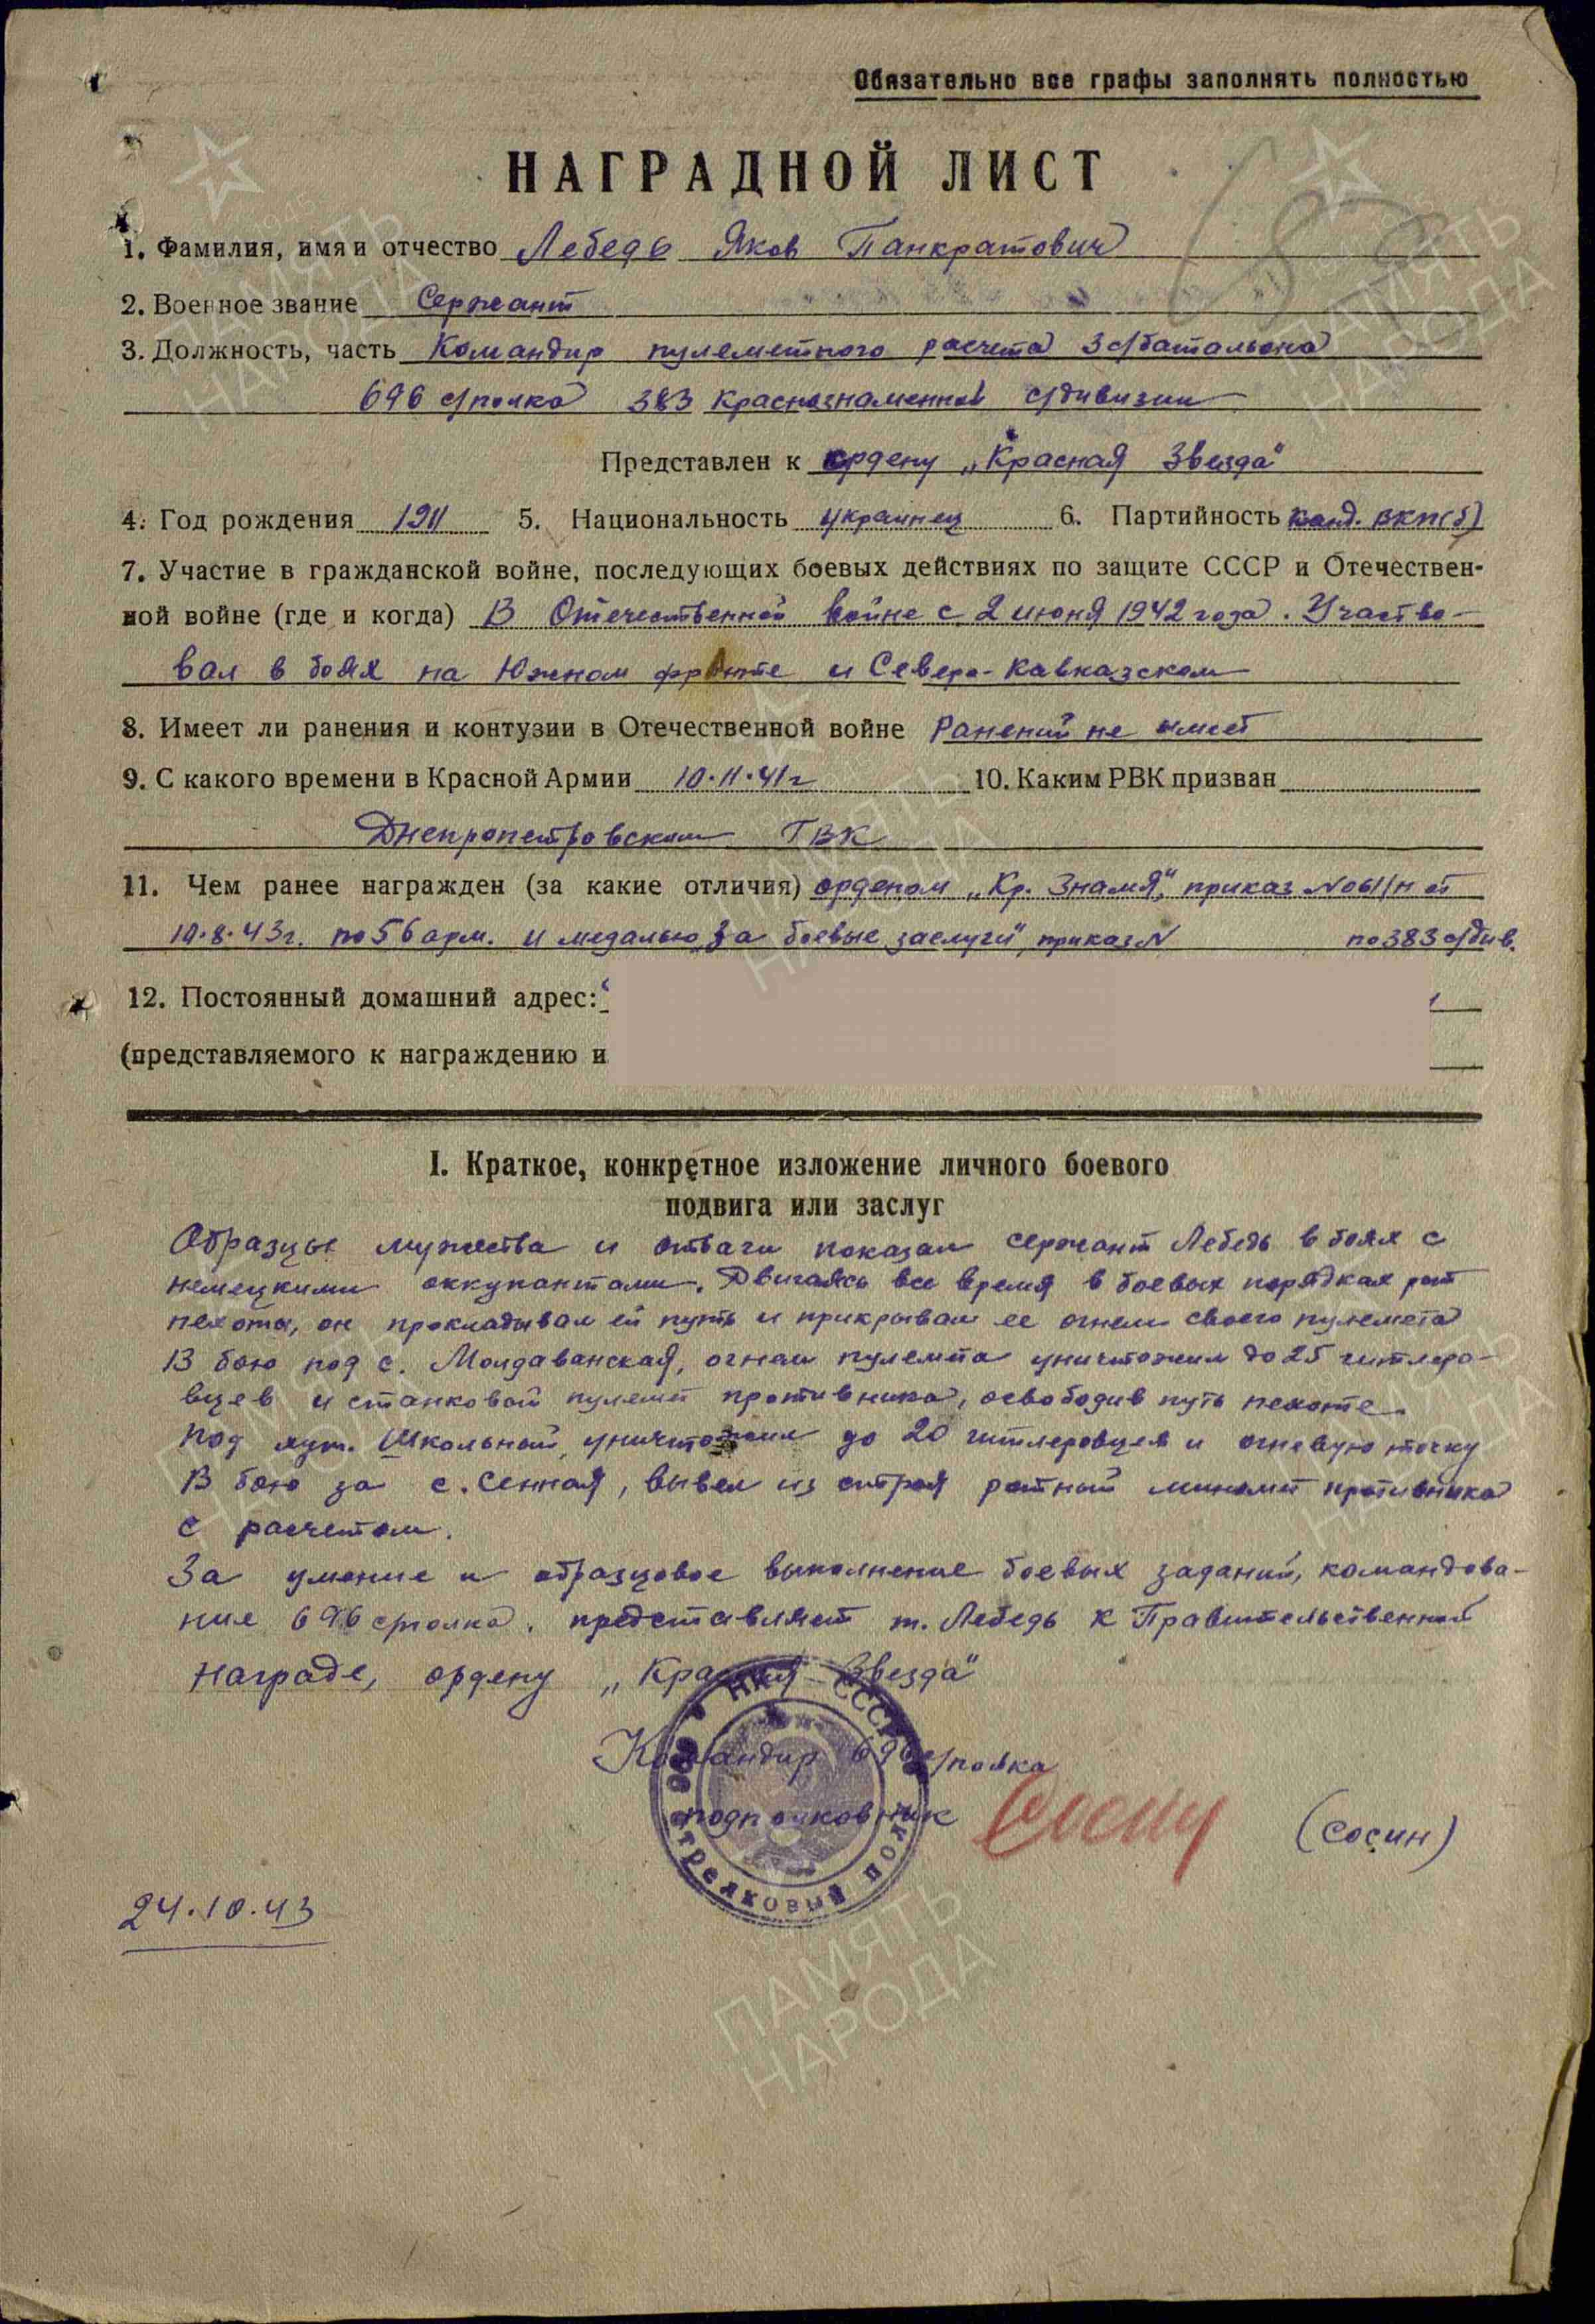 Обязательно все графы заполнять полностью
НАГРАДНОЙ ЛИСТ
1. Фамилия, имя и отчество Лебедь Яков Панкратович
2. Военное звание Сержант
3. Должность, часть Командир пулеметного расчета 3 с/батальона
696 с/полка 383 Краснознаменной с/дивизии
Представлен к ордену „Красная Звезда"
4. Год рождения 1911 5. Национальность украинец 6. Партийность канд. ВКП(б)
7. Участие в гражданской войне, последующих боевых действиях по защите СССР и Отечествен-
ной войне (где и когда) В Отечественной войне с 2 июня 1942 года. Участво-
вал в боях на Южном фронте и Северо-Кавказском
8. Имеет ли ранения и контузии в Отечественной войне Ранений не имеет
9. С какого времени в Красной Армии 10.11.41г 10. Каким РВК призван
Днепропетровским ГВК
11. Чем ранее награжден (за какие отличия) орденом „Кр. Знамя", приказ №061/н от
10.8.43г. по 56 арм. и медалью „За боевые заслуги", приказ N по 383 с/див.
12. Постоянный домашний адрес:
(представляемого к награждению и
I. Краткое, конкретное изложение личного боевого
подвига или заслуг
Образцы мужества и отваги показал сержант Лебедь в боях с
немецкими оккупантами. Двигаясь все время в боевых порядках рот
пехоты, он прокладывал ей путь и прикрывал ее огнем своего пулемета
В бою под с. Молдаванская, огнем пулемета уничтожил до 25 гитлеро-
вцев и станковой пулемет противника, освободив путь пехоте.
Под хут. Школьный, уничтожил до 20 гитлеровцев и огневую точку
В бою за с. Сенная, вывел из строя ротный миномет противника
с расчетом.
За умение и образцовое выполнение боевых заданий, командова-
ние 696 с/полка, представляет т. Лебедь к Правительственной
награде, ордену „Красная Звезда"
Командир 696 с/полка
подполковник (Сосин)
НКО СССР
696 стрелковый полк
24.10.43
ПАМЯТЬ
НАРОДА
ПАМЯТЬ
НАРОДА
ПАМЯТЬ
НАРОДА
ПАМЯТЬ
НАРОДА
ПАМЯТЬ
НАРОДА
ПАМЯТЬ
НАРОДА